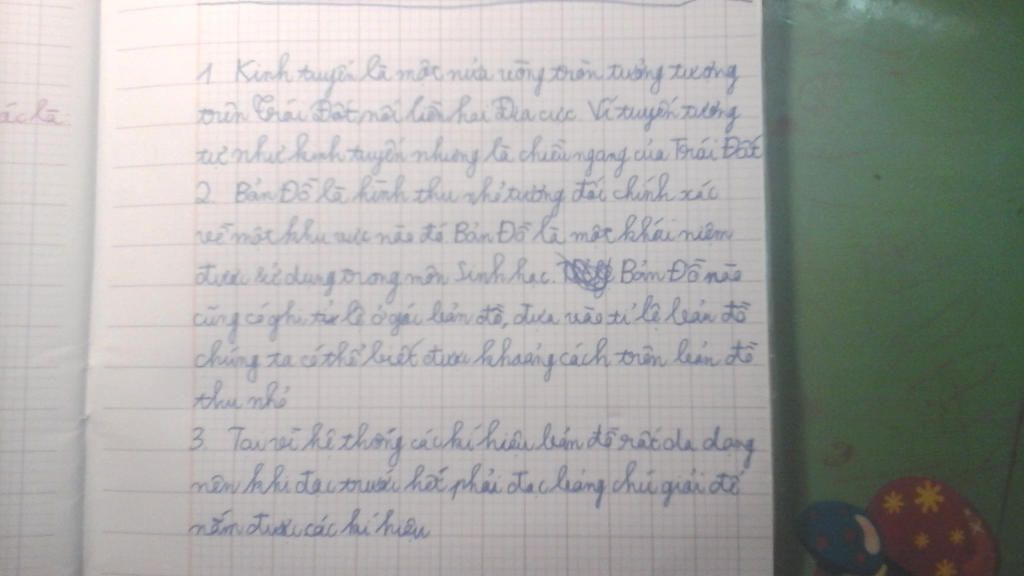 ác là:
1 Kinh tuyến là một nửa vòng tròn tưởng tượng
trên Trái Đất, nối liền hai Địa cực. Vĩ tuyến tương
tự như kinh tuyến nhưng là chiều ngang của Trái Đất
2. Bản Đồ là hình thu nhỏ tương đối chính xác
về một khu vực nào đó Bản Đồ là một khái niệm
được sử dụng trong môn Sinh học. Bản Đồ nào
cũng có ghi tỉ lệ ở bản đồ, dựa vào tỉ lệ bản đồ
chúng ta có thể biết được khoảng cách trên bản đồ
thu nhỏ
3. Tại vì hệ thống các kí hiệu bản đồ rất đa dạng
nên khi đọc trước hết phải đọc bảng chú giải để
nắm được các kí hiệu